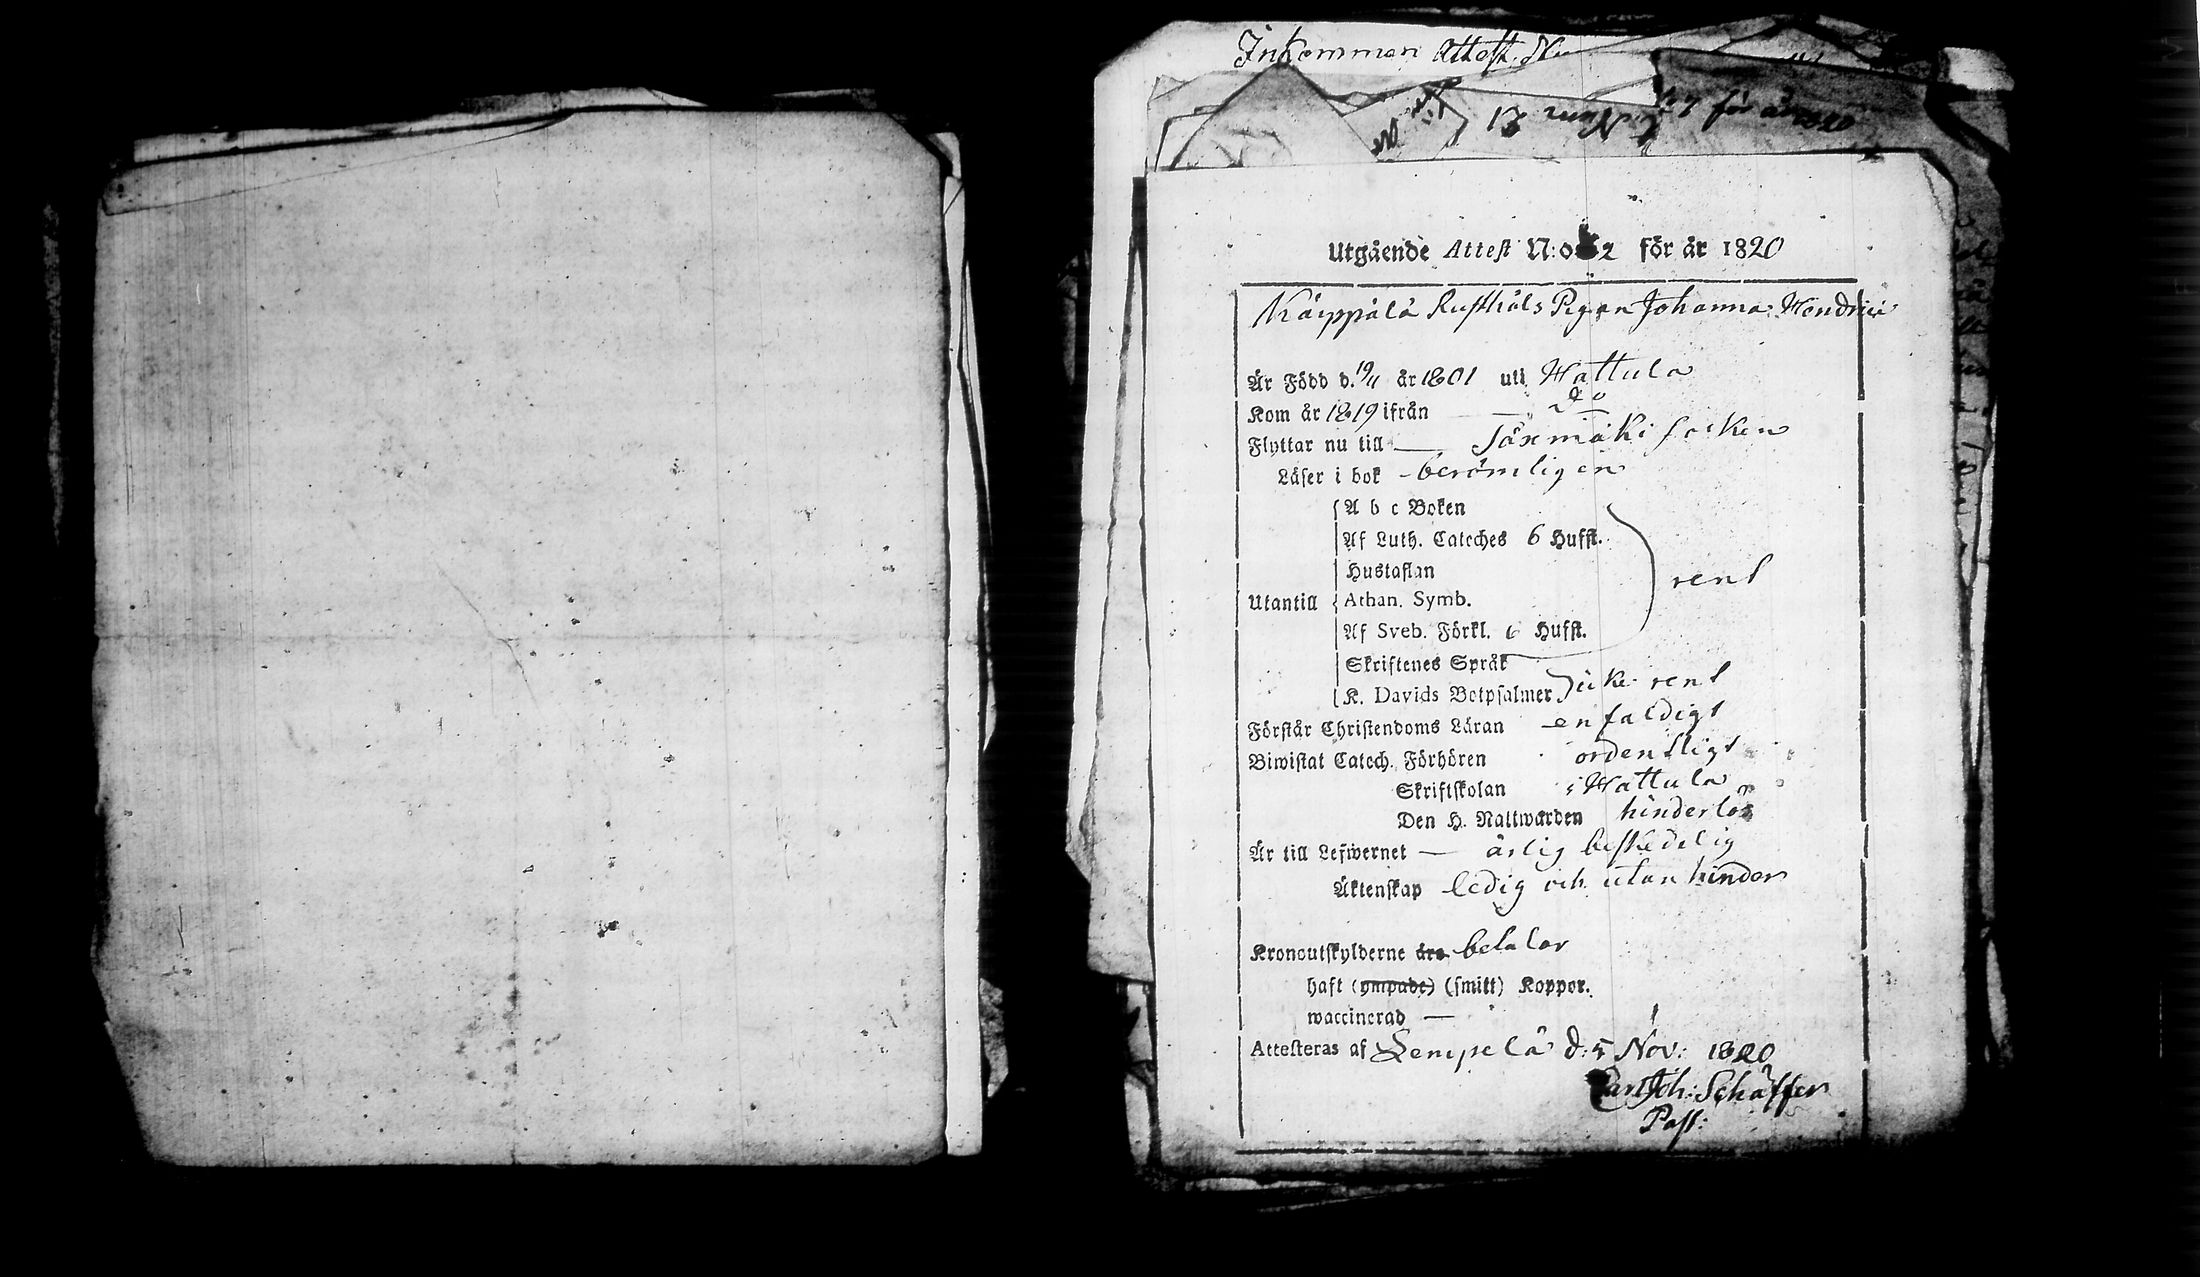 Inkommen Attest. No
Utgående Attest N:o 2 för år 1820
Käippälä Rusthåls Pigan Johanna Hendric
Är Född d. 19/11 år 1801 uti Hattula
Kom år 1819 ifrån — Do
Flyttar nu till — Säxmäki socken
Läser i bok - berömligen
A b c Boken
Af Luth. Cateches 6 Hufst.
Hustaflan
rent
Utantill Athan. Symb.
Af Sveb. Förkl. 6 Hufst.
Skriftenes Språk
K. Davids Botpsalmer icke rent
Förstår Christendoms Läran enfaldigt
Biwistat Catech. Förhören ordentligt
Skriftskolan i Hattula
Den H. Nattwarden hinderlös
Är till Lefwernet — ärlig beskedelig
Äktenskap ledig och utan hinder
Kronoutskylderne äro betalar
haft (ympade) (smitt) Koppor.
waccinerad —
Attesteras af Lempelä d: 5 Nov: 1820
Carl Joh: Schäffer
Past: